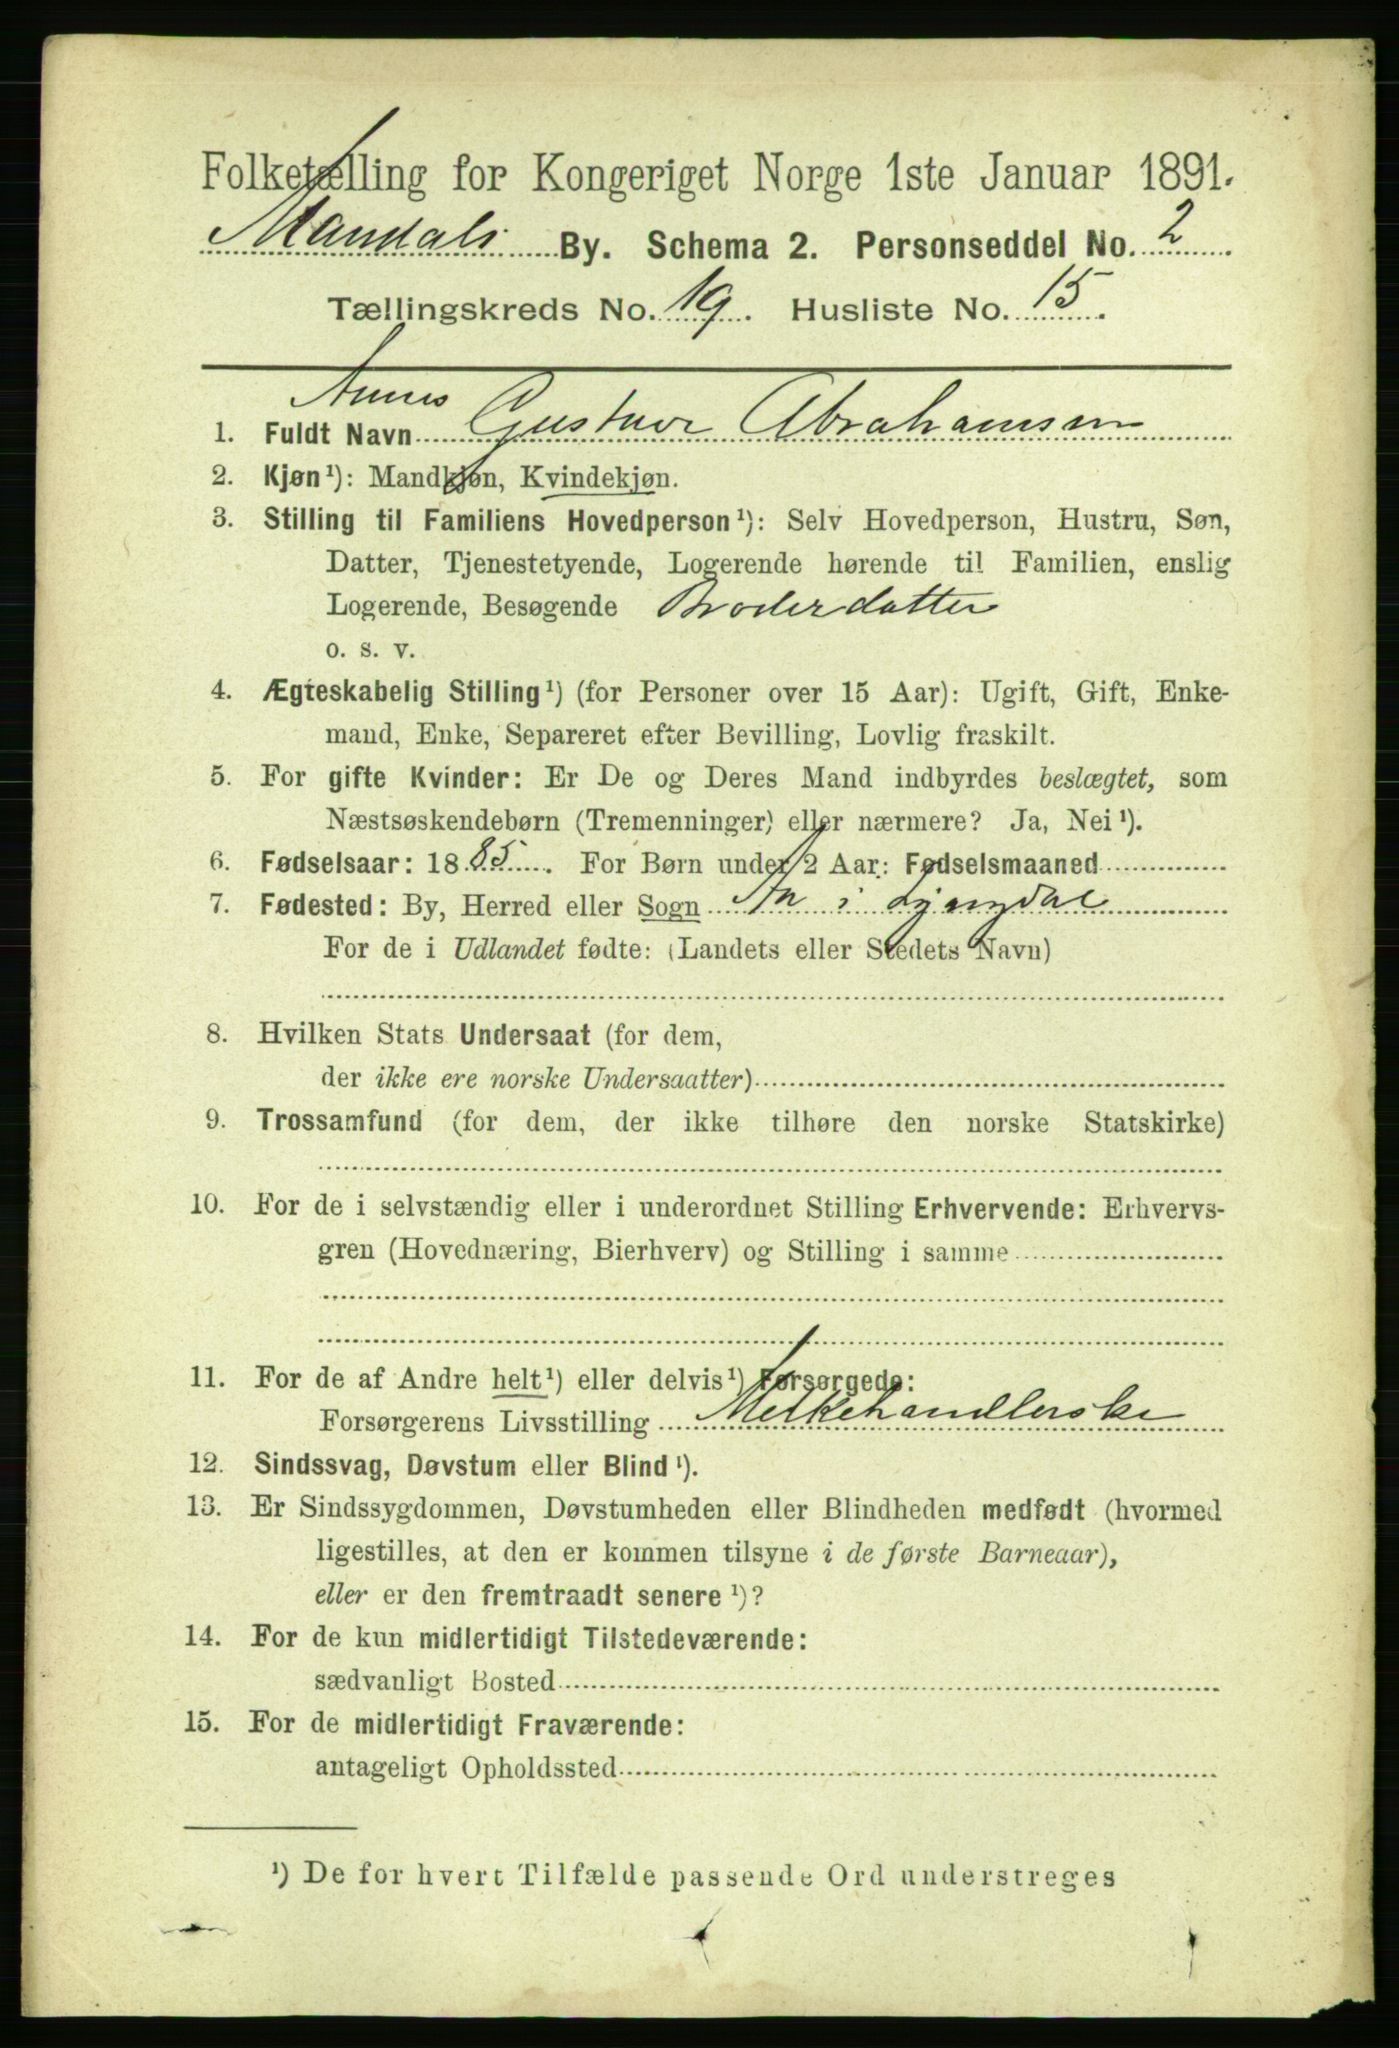 Folketælling for Kongeriget Norge 1ste Januar 1891.
Mandals By. Schema 2. Personseddel No. 2
Tællingskreds No. 19. Husliste No. 15.
1. Fuldt Navn Gustava Abrahamsen
2. Kjøn¹): Mandkjøn, Kvindekjøn.
3. Stilling til Familiens Hovedperson¹): Selv Hovedperson, Hustru, Søn,
Datter, Tjenestetyende, Logerende hørende til Familien, enslig
Logerende, Besøgende Broderdatter
o. s. v.
4. Ægteskabelig Stilling¹) (for Personer over 15 Aar): Ugift, Gift, Enke-
mand, Enke, Separeret efter Bevilling, Lovlig fraskilt.
5. For gifte Kvinder: Er De og Deres Mand indbyrdes beslægtet, som
Næstsøskendebørn (Tremenninger) eller nærmere? Ja, Nei¹).
6. Fødselsaar: 1885. For Børn under 2 Aar: Fødselsmaaned
7. Fødested: By, Herred eller Sogn Aa i Lyngdal
For de i Udlandet fødte: (Landets eller Stedets Navn)
8. Hvilken Stats Undersaat (for dem,
der ikke ere norske Undersaatter)
9. Trossamfund (for dem, der ikke tilhøre den norske Statskirke)
10. For de i selvstændig eller i underordnet Stilling Erhvervende: Erhvervs-
gren (Hovednæring, Bierhverv) og Stilling i samme
11. For de af Andre helt¹) eller delvis¹) Forsørgede:
Forsørgerens Livsstilling Melkehandlerske
12. Sindssvag, Døvstum eller Blind¹).
13. Er Sindssygdommen, Døvstumheden eller Blindheden medfødt (hvormed
ligestilles, at den er kommen tilsyne i de første Barneaar),
eller er den fremtraadt senere¹)?
14. For de kun midlertidigt Tilstedeværende:
sædvanligt Bosted
15. For de midlertidigt Fraværende:
antageligt Opholdssted
¹) De for hvert Tilfælde passende Ord understreges